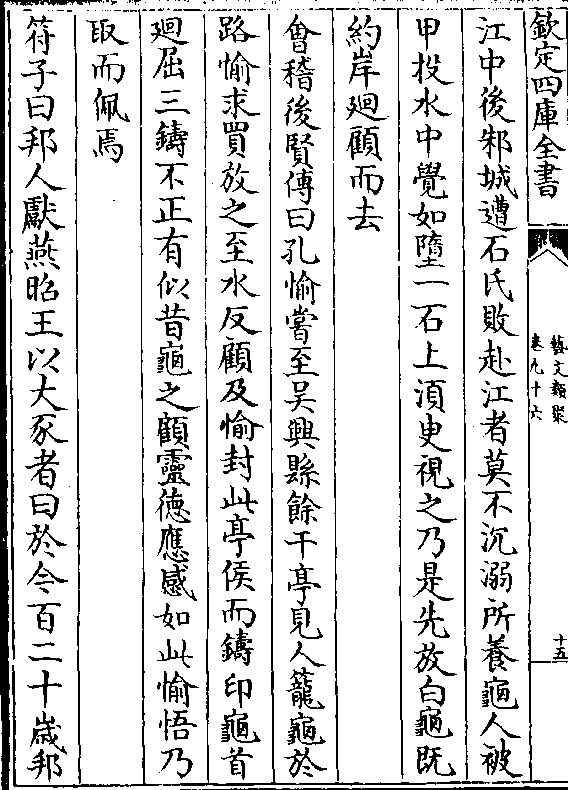 欽定四庫全書
藝文類聚
卷九十六
十五
江中後邾城遭石氏敗赴江者莫不沉溺所養龜人被
甲投水中覺如墮一石上湏臾視之乃是先放白龜既
約岸迴顧而去
㑹稽後賢傳曰孔愉嘗至吴興縣餘干亭見人籠龜於
路愉求買放之至水反顧及愉封此亭侯而鑄印龜首
迴屈三鑄不正有似昔龜之顧靈德應感如此愉悟乃
取而佩焉
符子曰邦人獻燕昭王以大豕者曰於今百二十嵗邦